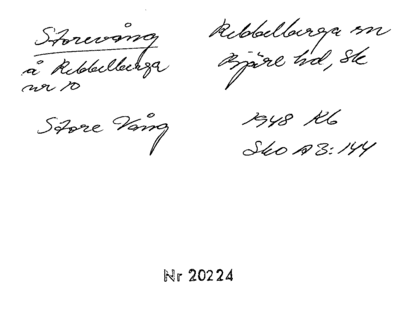 Storevång
å Rebbelberga
nr 10
Store Vång
Rebbelberga sn
Bjäre hd, Sk
1948 Kb
Sko A 3:144
Nr 20224